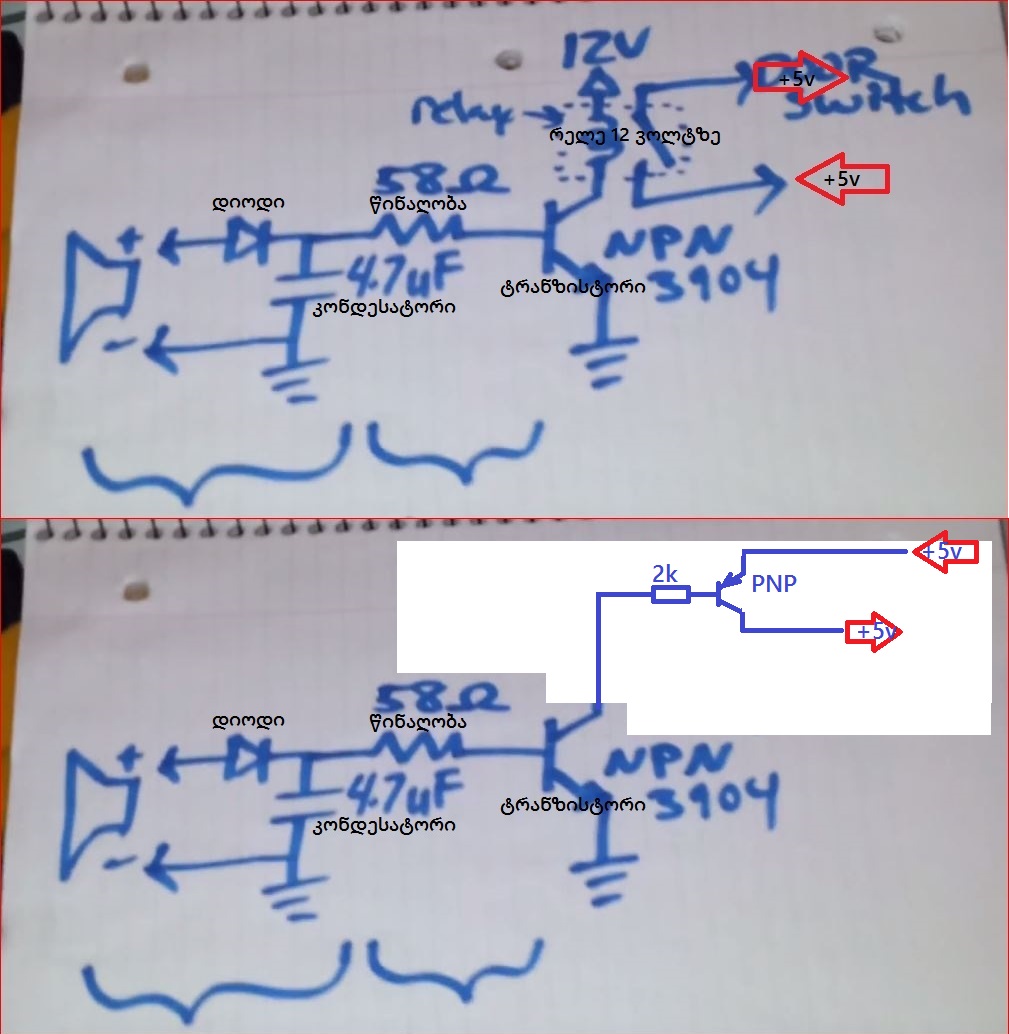 12V
DOOR
switch
+5v
relay
რელე 12 ვოლტზე
+5v
58Ω
დიოდი
წინაღობა
+
NPN
4.7uF
3904
ტრანზისტორი
კონდესატორი
-
+5v
2k
PNP
+5v
58Ω
დიოდი
წინაღობა
+
NPN
4.7uF
3904
ტრანზისტორი
კონდესატორი
-